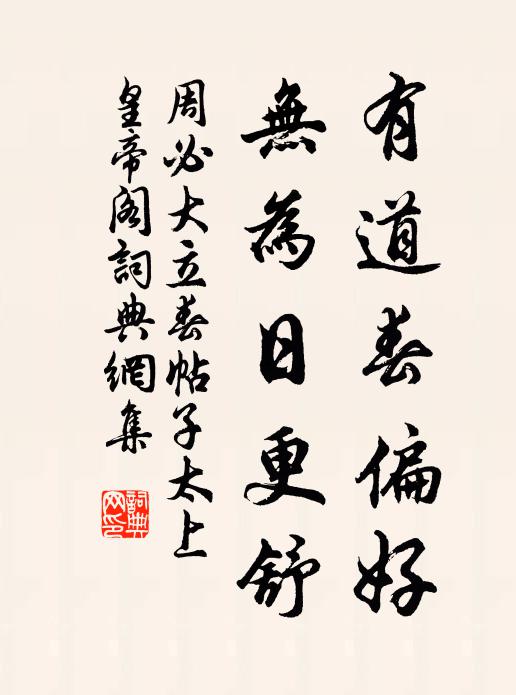 有道春偏好
無為日更舒
周必大立春帖子太上
皇帝阁詞典網集
詞典
网印